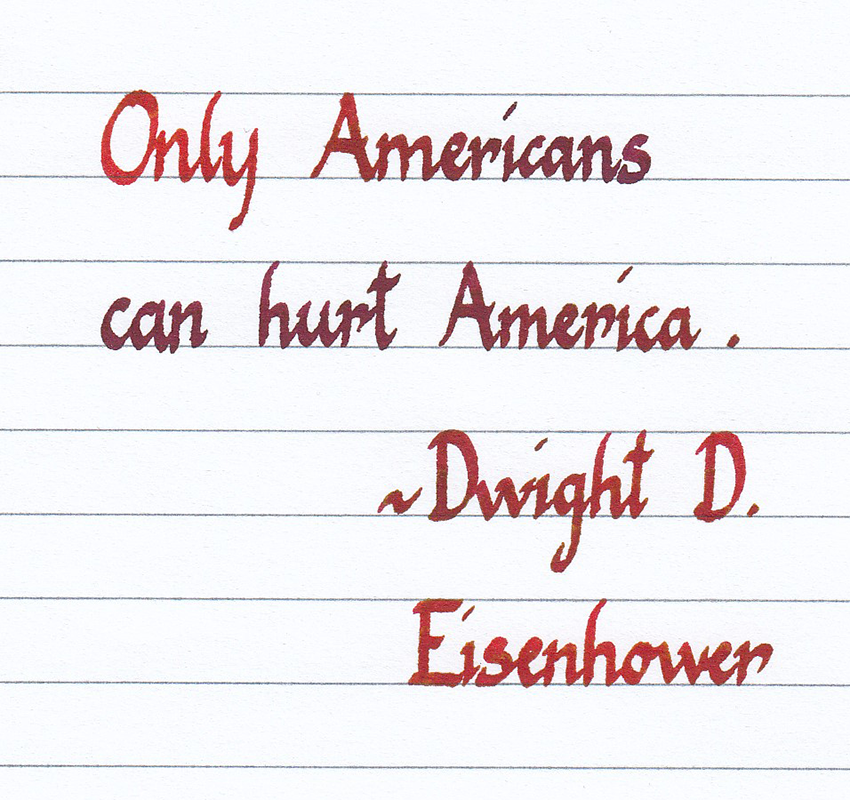 Only Americans
can hurt America.
~Dwight D.
Eisenhower